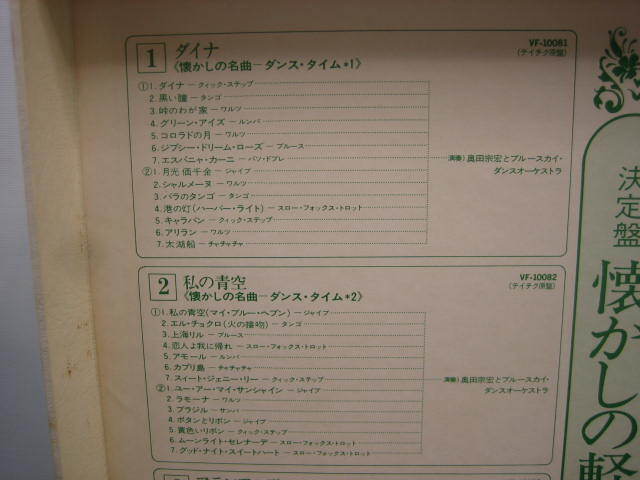 1 ダイナ
《懐かしの名曲－ダンス・タイム*1》
VF-10081
(テイチク原盤)
①1. ダイナ－クイック・ステップ
2. 黒い瞳－タンゴ
3. 峠のわが家－ワルツ
4. グリーン・アイズ－ルンバ
5. コロラドの月－ワルツ
6. ジプシー・ドリーム・ローズ－ブルース
7. エスパニャ・カーニ－パソ・ドブレ
②1. 月光価千金－ジャイブ
2. シャルメーヌ－ワルツ
3. バラのタンゴ－タンゴ
4. 港の灯(ハーバー・ライト)－スロー・フォックス・トロット
5. キャラバン－クィック・ステップ
6. アリラン－ワルツ
7. 太湖船－チャチャチャ
演奏) 奥田宗宏とブルースカイ・
ダンスオーケストラ
2 私の青空
《懐かしの名曲－ダンス・タイム*2》
VF-10082
(テイチク原盤)
①1. 私の青空(マイ・ブルー・ヘブン)－ジャイブ
2. エル・チョクロ(火の接吻)－タンゴ
3. 上海リル－ブルース
4. 恋人よ我に帰れ－スロー・フォックス・トロット
5. アモール－ルンバ
6. カプリ島－チャチャチャ
7. スイート・ジェニー・リー－クィック・ステップ
②1. ユー・アー・マイ・サンシャイン－ジャイブ
2. ラモーナ－ワルツ
3. ブラジル－サンバ
4. ボタンとリボン－ジャイブ
5. 黄色いリボン－クィック・ステップ
6. ムーンライト・セレナーデ－スロー・フォックス・トロット
7. グッド・ナイト・スイートハート－スロー・フォックス・トロット
演奏) 奥田宗宏とブルースカイ・
ダンスオーケストラ
決定盤
懐かしの軽